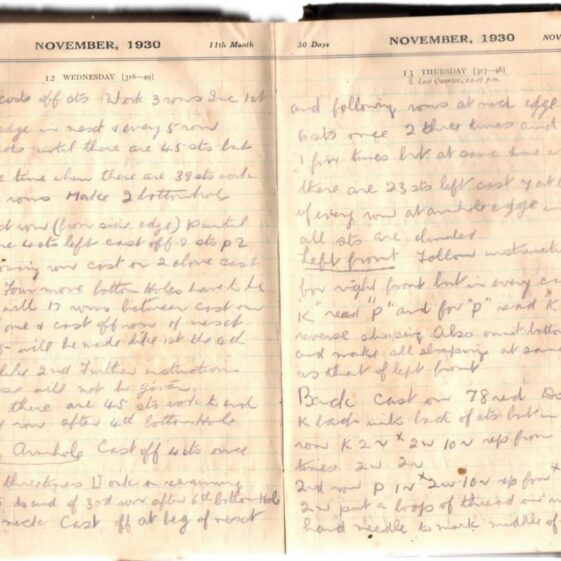 NOVEMBER, 1930 11th Month
12 WEDNESDAY [316—49]
off sts Work 3 rows Inc 1st
edge in next & every 5 row
sts until there are 45 sts but
time when there are 39 sts work
rows Make 2 bottonhol
row (from side edge)
4 sts left cast off 2 sts P 2
row cast on 2 above cast
Four more botton Holes have to be
with 17 rows between cast on
one & cast off row of next
5 will be made like 1st the 4th
like 2nd Further instructions
will not be given.
there are 45 sts work to end
row after 4th botton Hole
Armhole Cast off 4 sts once
three times Work on remaining
to end of 3rd row after 6th botton Hole
neck Cast off at beg of next
30 Days NOVEMBER, 1930 NOV
13 THURSDAY [317—48]
Last Quarter, 12.27 p.m.
and following rows at neck edge
6 sts once 2 three times and
1 five times but at same time
there are 23 sts left cast 7 at
of every row at armhole edge
all sts are
Left front Follow instructi
for right front but in every ca
K" read "P" and for "P" read "K
reverse shaping Also omit botton
and make all shaping at same
as that of left front
Back Cast on 78 red
K back of sts but in
row K 2 N x 2 W 10 N rep from
times 2 W 2 N
2nd row P 1 N x 2 W 10 N rep from x
2 W put a loop of thread on
hand needle to mark middle of